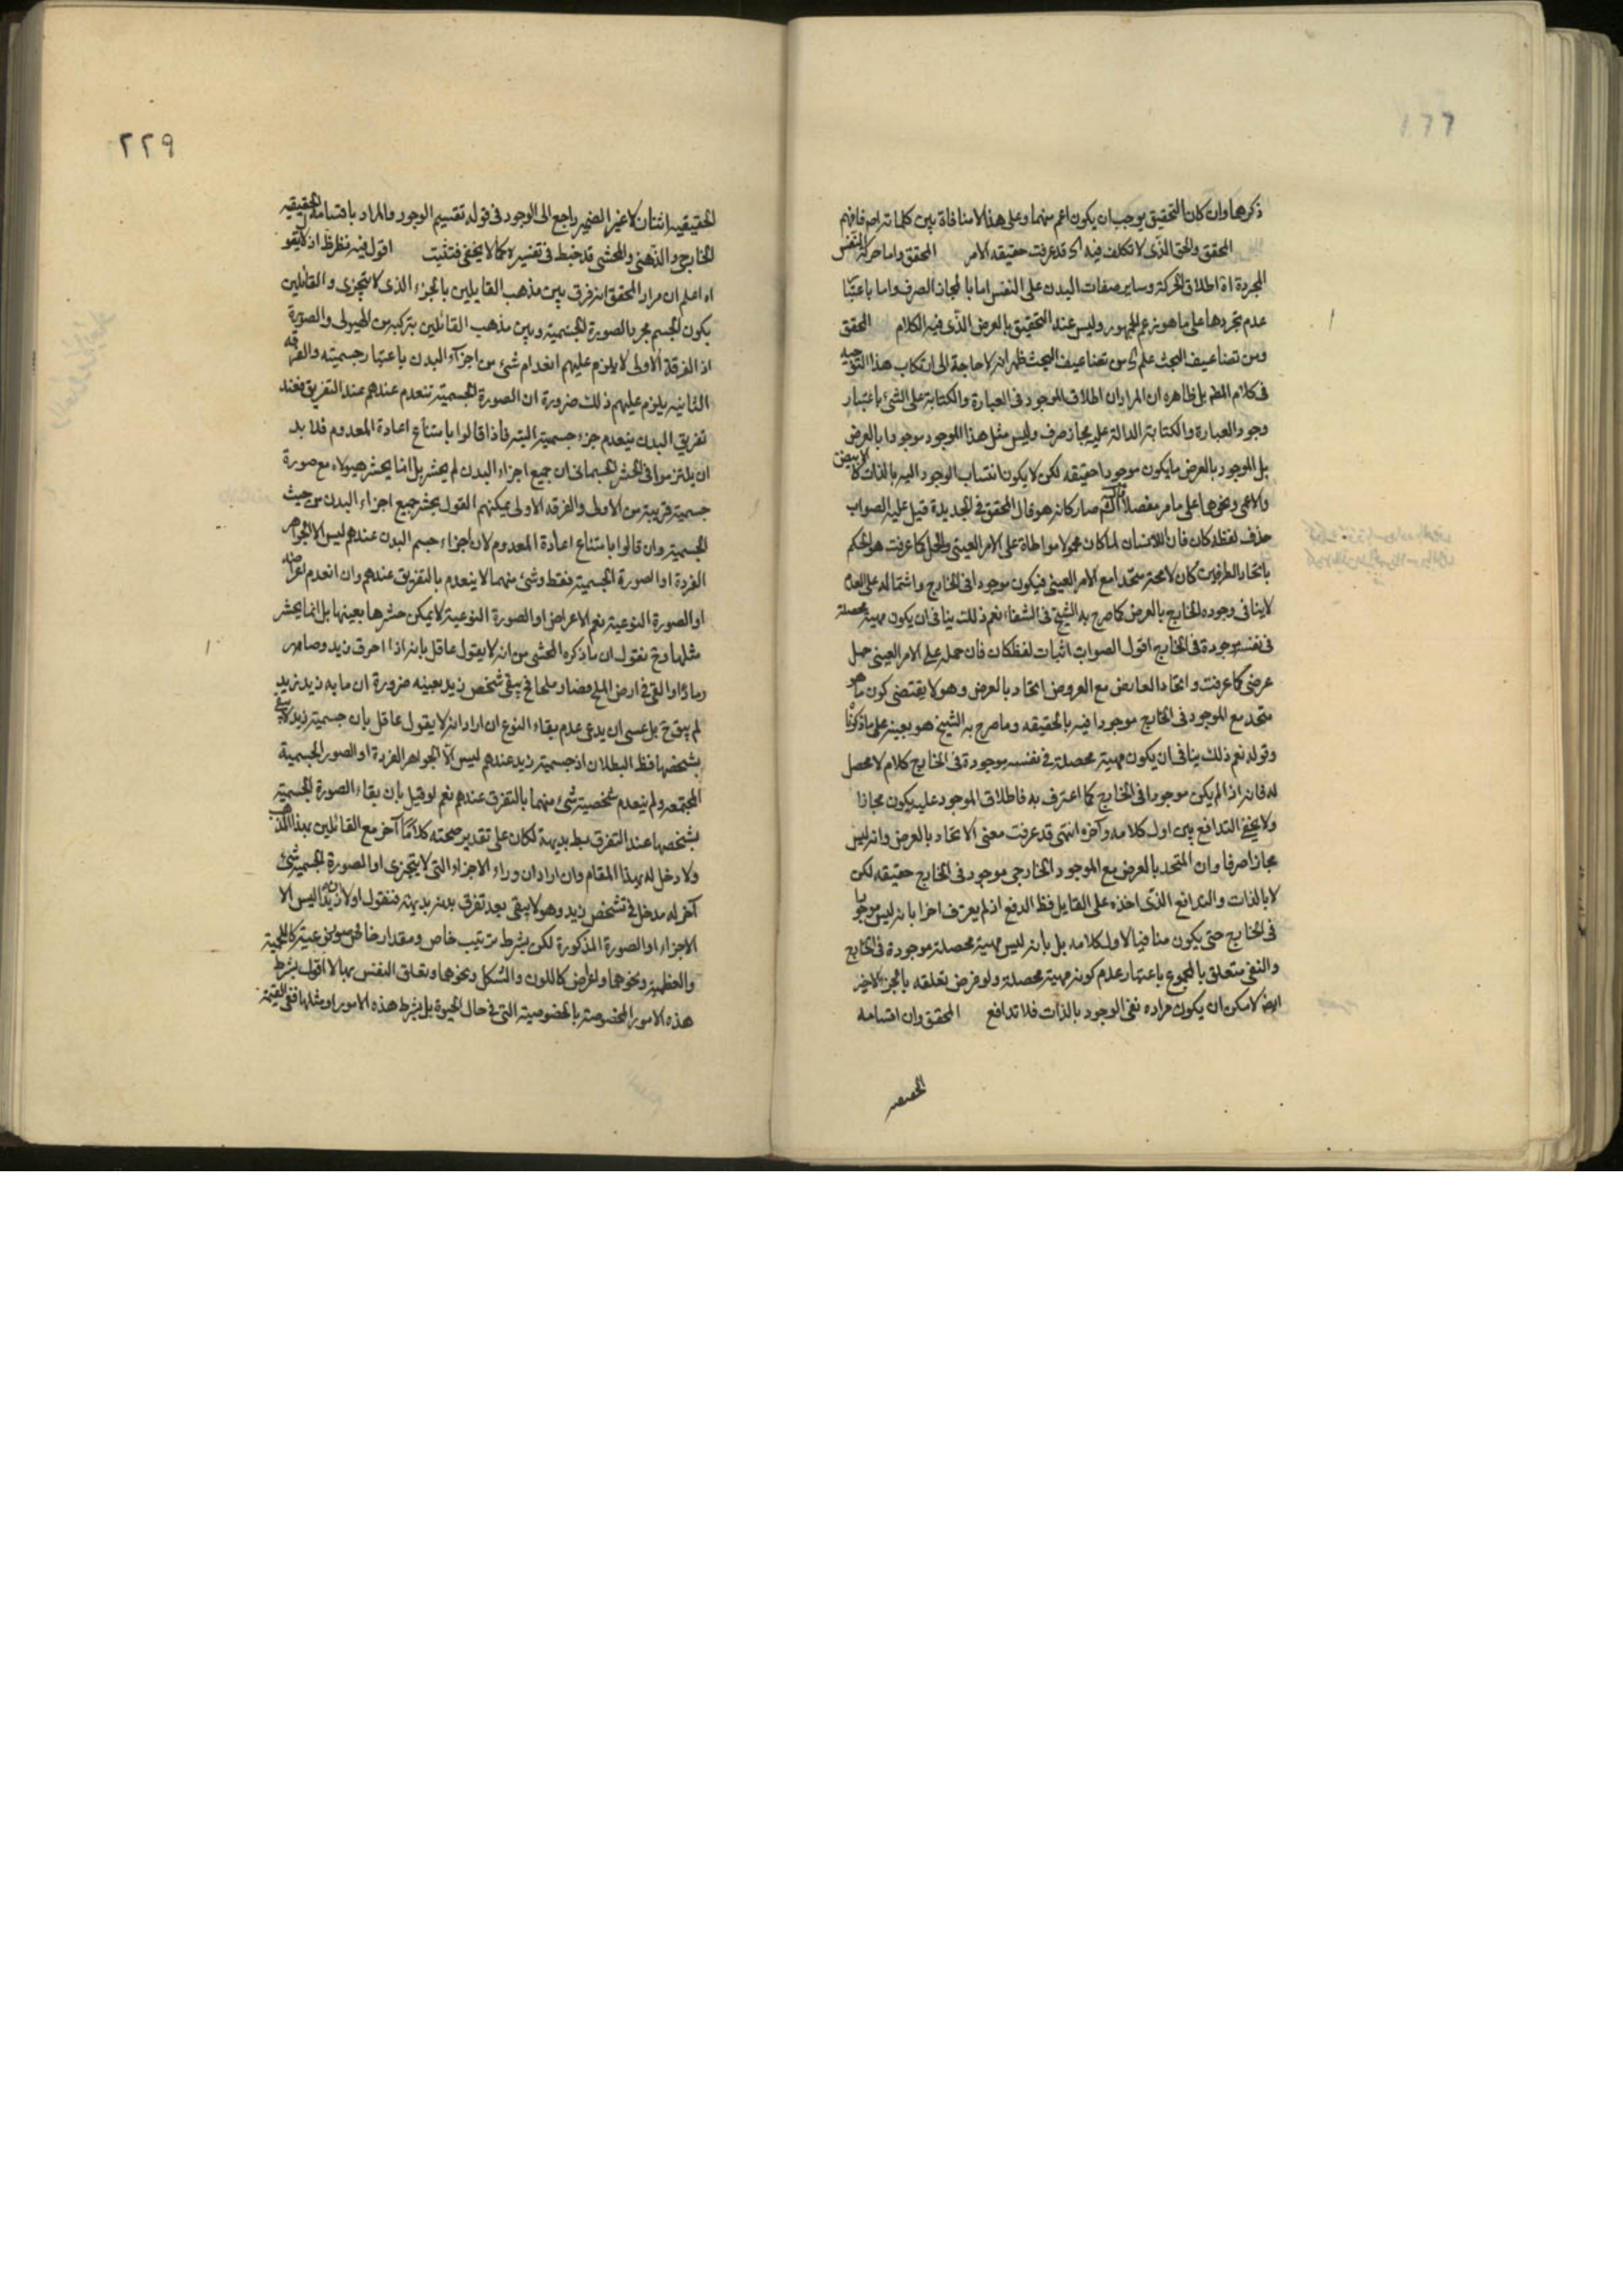 ذكرها وان كان التحقيق يوجب ان يكون اعم منهما وعلى هذا لا منافاة بين كلماته اصلا فافهم
المحقق والحق الذى لا تكلف فيه اى قد عرفت حقيقه الامر المحقق واما حركة النفس
المجردة اه اطلاق الحركة وساير صفات البدن على النفس اما بالمجاز الصرف واما باعتبار
عدم تجردها على ما هو زعم الجمهور وليس عند التحقيق بالعرض الذى فيه الكلام المحقق
ومن تضاعيف البحث علم اى من تضاعيف البحث ظهر انه لا حاجة الى ارتكاب هذا التوجيه
فى كلام المظ بل ظاهره ان المراد ان اطلاق الموجود فى العبارة والكتابة على الشئ باعتبار
وجود العبارة والكتابة الدالة عليه مجاز صرف وليس مثل هذا الموجود موجودا بالعرض
بل الموجود بالعرض ما يكون موجودا حقيقه لكن لا يكون انتساب الوجود اليه بالذات كالابيض
والاعمى ونحوها على ما مر مفصلا صار كانه هو قال المحقق فى الجديدة قيل عليه الصواب
حذف لفظه كان فان اللاانسان لما كان محمولا مواطاة على الامر العينى والحمل كما عرفت هو الحكم
باتحاد الطرفين كان لا محة متحدا مع الامر العينى فيكون موجودا فى الخارج واشتماله على العدم
لا ينافى وجوده الخارج بالعرض كما صرح به الشيخ فى الشفاء نعم ذلك ينافى ان يكون مهية محصلة
فى نفسه موجودة فى الخارج اقول الصواب اثبات لفظ كان فان حمله على الامر العينى حمل
عرضى كما عرفت واتحاد العارض مع المعروض اتحاد بالعرض وهو لا يقتضى كون ما هو
متحد مع الموجود فى الخارج موجودا فيه بالحقيقه وما صرح به الشيخ هو بعينه على ما ذكرنا
وقوله نعم ذلك ينافى ان يكون مهية محصلة فى نفسه موجودة فى الخارج كلام لا محصل
له فانه اذا لم يكن موجودا فى الخارج كما اعترف به فاطلاق الموجود عليه يكون مجازا
ولا يخفى التدافع بين اول كلامه وآخره انتهى قد عرفت معنى الاتحاد بالعرض وانه ليس
مجازا صرفا وان المتحد بالعرض مع الموجود الخارجى موجود فى الخارج حقيقه لكن
لا بالذات والتدافع الذى اخذه على القايل فظ الدفع اذ لم يعترف اخرا بانه ليس موجودا
فى الخارج حتى يكون منافيا لاول كلامه بل بانه ليس مهية محصلة موجودة فى الخارج
والنفى متعلق بالمجموع باعتبار عدم كونه مهية محصلة ولو فرض تعلقه بالجزء الاخير
ايضا لامكن ان يكون مراده نفى الوجود بالذات فلا تدافع المحقق وان اقسامه
الحقيقيه
٢٢٩
الحقيقيه اثنان لا غير الضمير راجع الى الوجود فى قوله تقسيم الوجود والمراد باقسامه الحقيقيه
الخارجى والذهنى والمحشى قد خبط فى تفسيره كما لا يخفى فتثبت اقول فيه نظر ظ اذ
اه اعلم ان مراد المحقق انه فرق بين مذهب القايلين بالجزء الذى لا يتجزى والقائلين
بكون الجسم مجرد الصورة الجسمية وبين مذهب القائلين بتركبه من الهيولى والصورة
اذ الفرقة الاولى لا يلزم عليهم انعدام شئ من اجزاء البدن باعتبار جسميته والفرقه
الثانيه يلزم عليهم ذلك ضرورة ان الصورة الجسمية تنعدم عندهم عند التفريق فعند
تفريق البدن ينعدم جزء جسمية البته فاذا قالوا بامتناع اعادة المعدوم فلا بد
ان يلتزموا فى الحشر الجسمانى ان جميع اجزاء البدن لم يحشر بل انما يحشر هيولاه مع صورة
جسمية قريبة من الاولى والفرقه الاولى يمكنهم القول بحشر جميع اجزاء البدن من حيث
الجسمية وان قالوا بامتناع اعادة المعدوم لان اجزاء جسم البدن عندهم ليس الا الجواهر
الفردة او الصورة الجسمية فقط وشئ منهما لا ينعدم بالتفريق عندهم وان انعدم اعراضه
او الصورة النوعية نعم الاعراض او الصورة النوعية لا يمكن حشرها بعينها بل انما يحشر
مثلها وح نقول ان ما ذكره المحشى من انه لا يقول عاقل بانه اذا احرق زيد وصار
رمادا او القى فى ارض الملح فصار ملحا فح يبقى شخص زيد بعينه ضرورة ان ما به زيد زيد
لم يبق ح بل عسى ان يدعى عدم بقاء النوع ان اراد انه لا يقول عاقل بان جسمية زيد لا يبقى
بشخصها فظ البطلان اذ جسمية زيد عندهم ليس الا الجواهر الفردة او الصور الجسمية
المجتمعه ولم ينعدم شخصية شئ منهما بالتفرق عندهم نعم لو قيل بان بقاء الصورة الجسمية
بشخصها عند التفرق بط بديهة لكان على تقدير صحته كلاما آخر مع القائلين بهذا المذهب
ولا دخل له بهذا المقام وان اراد ان وراء الاجزاء التى لا يتجزى او الصورة الجسمية شئ
آخر له مدخل فى تشخص زيد وهو لا يبقى بعد تفرق بدنه بديهة فنقول اولا ان زيدا ليس الا
الاجزاء او الصورة المذكورة لكن بشرط ترتيب خاص ومقدار خاص وصور نوعية كاللحمية
والعظمية ونحوهما واعراض كاللون والشكل ونحوها وتعلق النفس بها لا اقول بشرط
هذه الامور المخصوصة بالخصوصية التى فى حال الحيوة بل بشرط هذه الامور او مثلها ففى القيمة